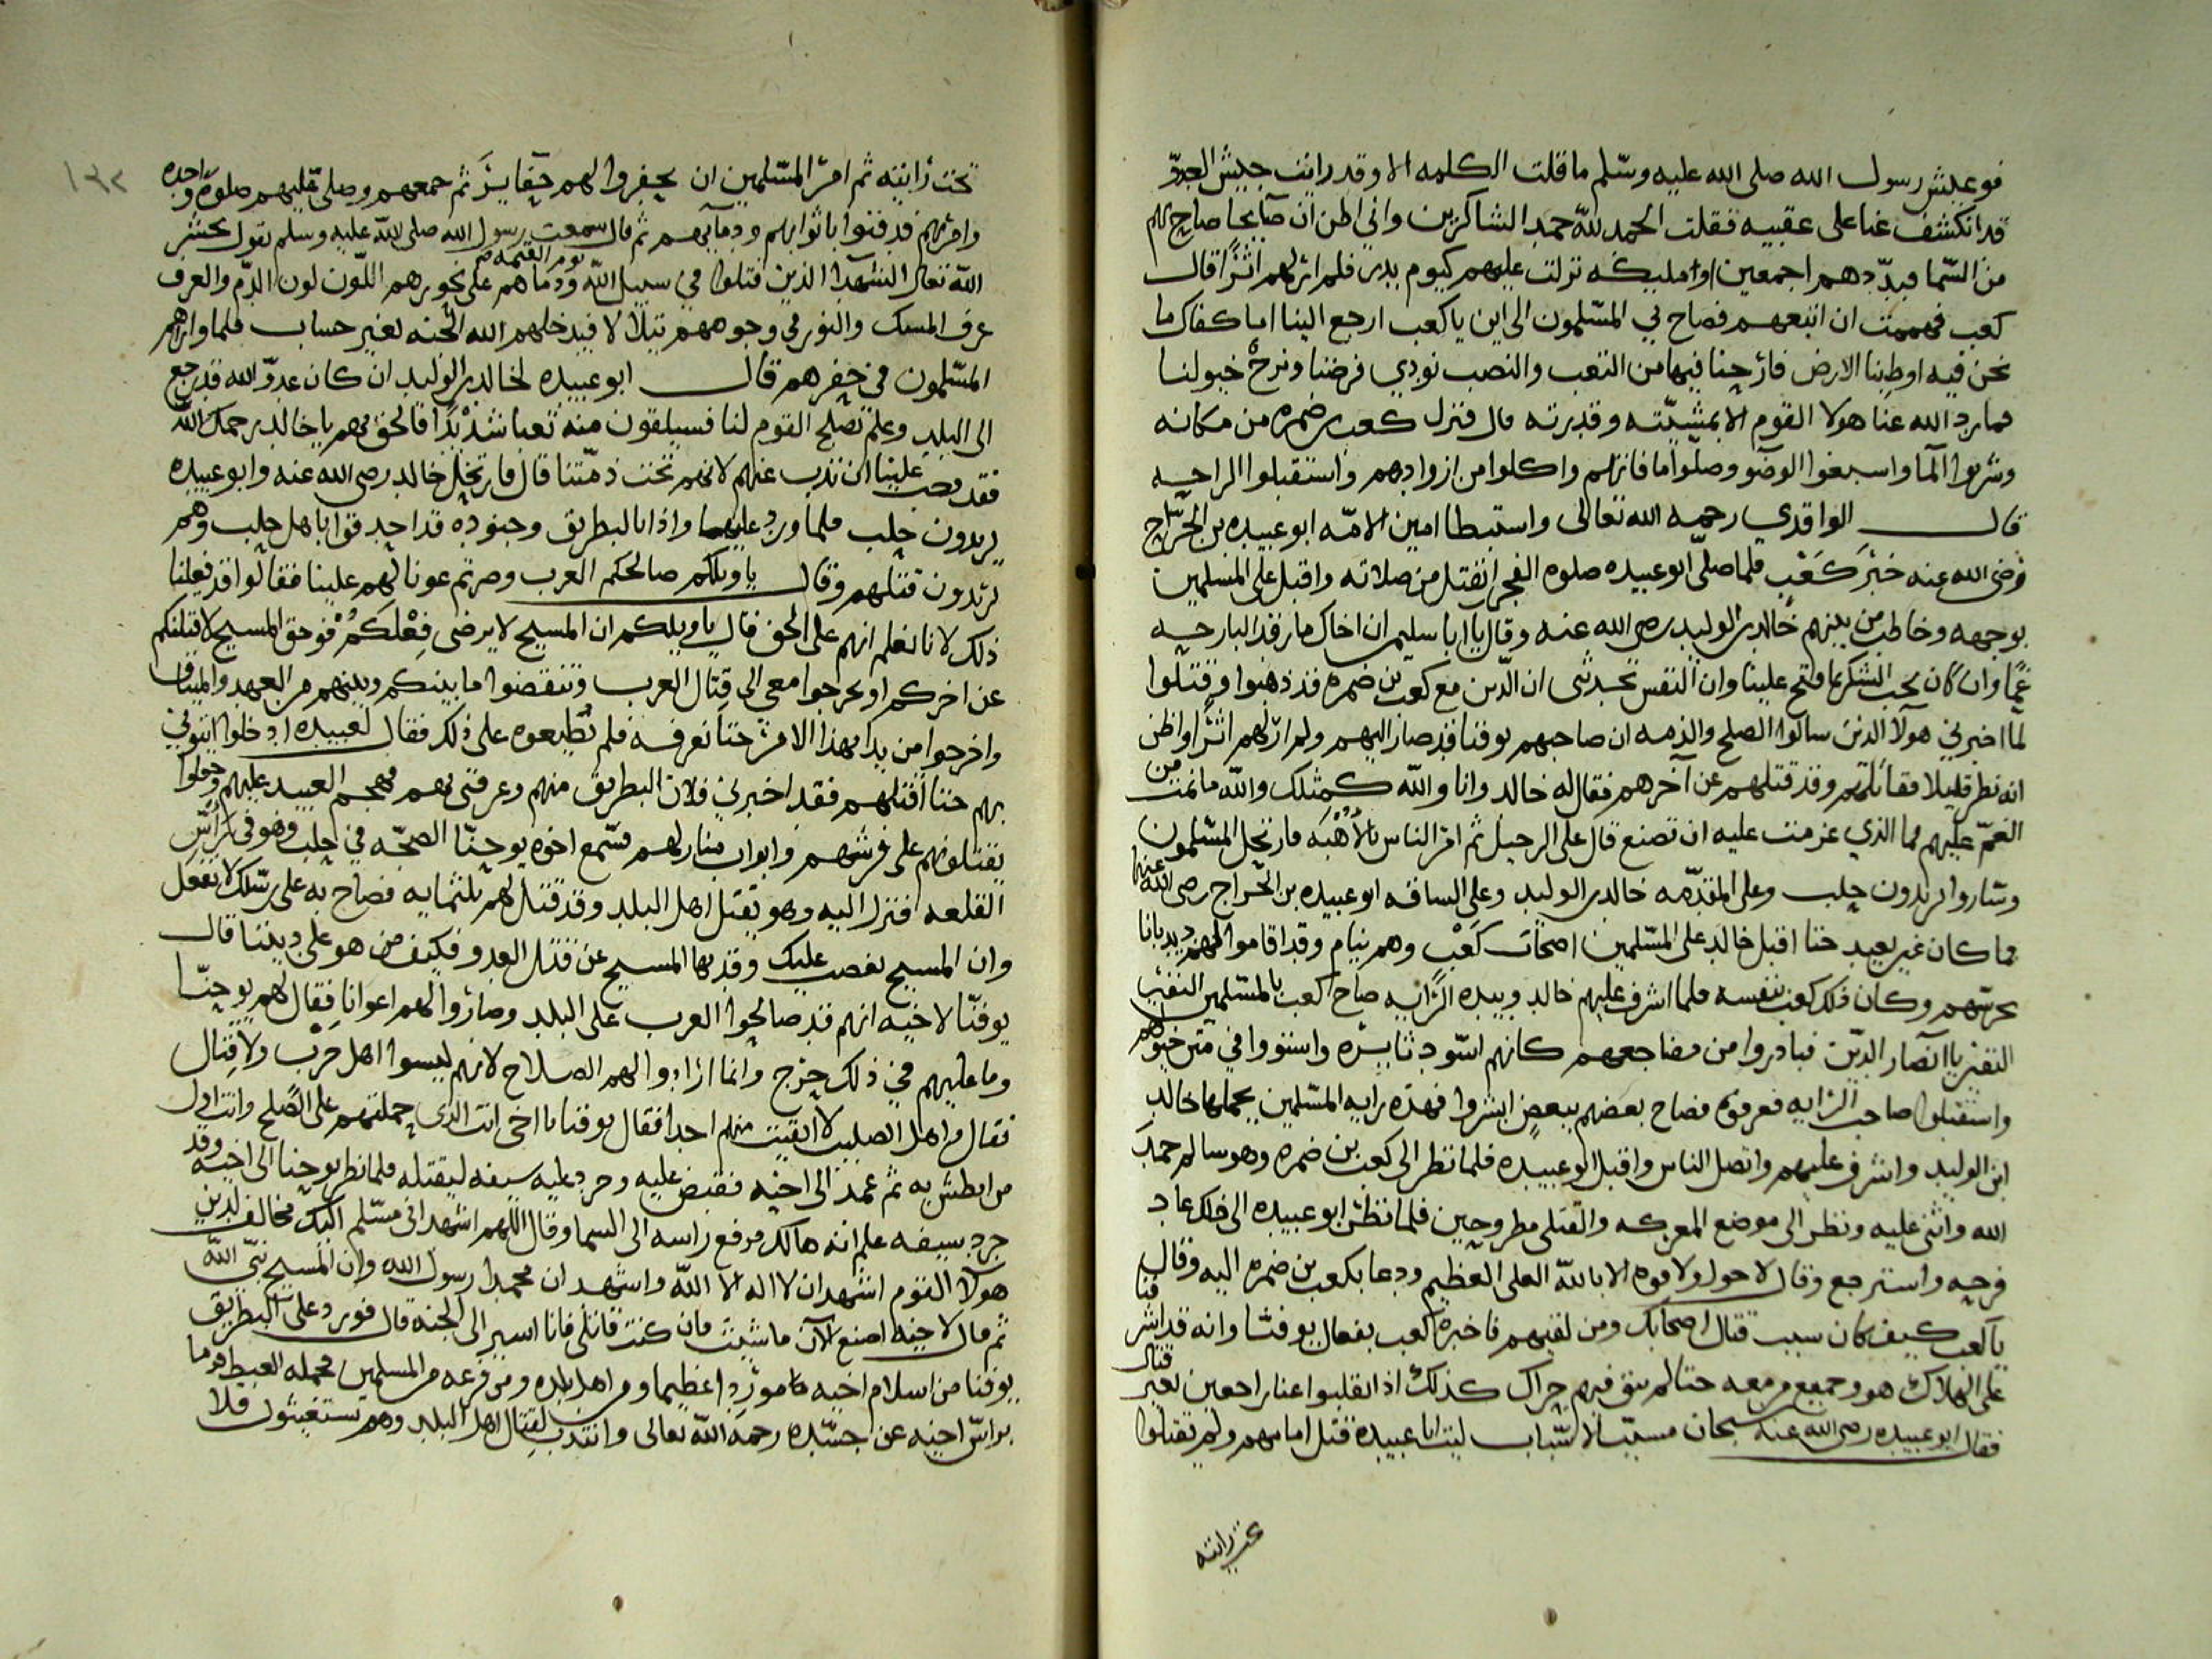 فوعيش رسول الله صلى الله عليه وسلم ما قلت الكلمه الا وقد رايت جيش العدوّ
قد انكشف عنا على عقبيه فقلت الحمد لله حمد الشاكرين واني اظن ان صايحا صاح بهم
من السما فبدّدهم اجمعين او مليكه نزلت عليهم كيوم بدر فلم ار لهم اثرا قال
كعب فهممت ان اتبعهم فصاح بي المسلمون الى اين يا كعب ارجع الينا اما كفاك ما
نحن فيه اوطِنا الارض فارحنا فيها من التعب والنصب نودي فرضنا ونرح خيولنا
فما رد الله عنا هولا القوم الا بمشيّته وقدرته قال فنزل كعب بن ضمره من مكانه
وشربوا الما واسبغوا الوضو وصلوا ما فاتهم واكلوا من ازوادهم واستقبلوا الراحه
قال الواقدي رحمه الله تعالى واستبطا امين الامّه ابو عبيده بن الجرّاح
رضى الله عنه خبْرَ كَعْب فلما صلى ابو عبيده صلوه الفجر انفتل من صلاته واقبل على المسلمين
بوجهه وخاطب من بينهم خالد بن الوليد رضى الله عنه وقال يا ابا سليمن ان اخاك ما رقد البارحه
غمّا وان كان يجب الشكر بما فتح علينا وان النفس تحدثنى ان الذين مع كعب بن ضمره قد ذهبوا وقتلوا
لما اخبرني هولا الذين سالوا الصلح والذمه ان صاحبهم يوقنا قد صار اليهم ولم ار لهم اثرا واظن
انه نظر قليلا فقاتلهم وقد قتلهم عن آخرهم فقال له خالد وانا والله كمثلك والله ما نمت من
الغمّ عليهم فما الذي عزمت عليه ان تصنع قال على الرحيل ثم امر الناس بالاُهْبَه فارتحل المسلمون
وساروا يريدون حلب وعلى المقدّمه خالد بن الوليد وعلى الساقه ابو عبيده بن الجراح رضى الله عنهما
فما كان غير بعيد حتا اقبل خالد على المسلمين اصحاب كَعْب وهم نيام وقد اقاموا لهم ديدبانا
يحرسهم وكان فلك كعب بنفسه فلما اشرف عليهم خالد وبيده الرايه صاح كعب بالمسلمين النفير
النفير يا انصار الدين فبادروا من مضاجعهم كانهم اسود ثايره واستووا في متن خيولهم
واستقبلوا صاحب الرايه فعرفوه فصاح بعضهم ببعض ابشروا فهذه رايه المسلمين يحملها خالد
ابن الوليد واشرف عليهم واتصل الناس واقبل ابو عبيده فلما نظر الى كعب بن ضمره وهو سالم حمد
الله واثنى عليه ونظر الى موضع المعركه والقتلى مطروحين فلما نظر ابو عبيده الى ذلك عاد
فرحه واسترجع وقال لا حول ولا قوه الا بالله العلى العظيم ودعا بكعب بن ضمره اليه وقال
يا كعب كيف كان سبب قتال اصحابك ومن لقيهم فاخبره كعب بفعال يوقنا وانه قد اشرفنا
على الهلاك هو وجميع من معه حتا لم يبق فيهم حراك كذلك اذ انقلبوا عنا راجعين بغير قتال
فقال ابو عبيده رضى الله عنه سبحان مسبّب الاسباب ليت ابا عبيده قتل امامهم ولم يقتلوا
تحت رايته
١٣٢
تحت رايته ثم امر المسلمين ان يحفروا لهم حفاير ثم جمعهم وصلى عليهم صلوه واحده
وامرهم فدفنوا باثوابهم ودمآيهم ثم قال سمعت رسول الله صلى الله عليه وسلم يقول يحشر
الله تعالى الشهدا الذين قتلوا في سبيل الله يوم القيمه ودماهم على نحورهم اللّون لون الدّم والعرف
عرف المسك والنور في وجوههم يتلالا فيدخلهم الله الجنه بغير حساب فلما واراهم
المسلمون في حفرهم قال ابو عبيده لخالد بن الوليد ان كان عدوّ الله قد رجع
الى البلد وعلم بصلح القوم لنا فسيلقون منه تعبا شدْيدًا فالحق بهم يا خالد رحمك الله
فقد وجب علينا ان نذب عنهم لانهم تحت ذمّتنا قال فارتحل خالد رضى الله عنه وابو عبيده
يريدون حلب فلما ورد عليهما واذا بالبطريق وجنوده قد احدقوا باهل حلب وهم
يريدون قتلهم وقال يا ويلكم صالحكم العرب وصرتم عونا لهم علينا فقالوا قد فعلنا
ذلك لانا نعلم انهم على الحق قال يا ويلكم ان المسيح لا يرضى فِعْلَكُمْ فوحق المسيح لاقتلنكم
عن اخركم او تخرجوا معى الى قتال العرب وتنقضوا ما بينكم وبينهم من العهد والميثاق
واخرجوا من بدا بهذا الامر حتا نعرفه فلم يطيعوه على ذلك فقال لعبيده ادخلوا ايتوني
بهم حتا اقتلهم فقد اخبرني فلان البطريق منهم وعرفنى بهم فهجم العبيد عليهم وجعلوا
يقتلونهم على فرشهم وابواب منازلهم فسمع اخوه يوحنّا الضجّه في حلب وهو في راس
القلعه فنزل اليه وهو يقتل اهل البلد وقد قتل لهم ثلثمايه فصاح به على رسلك لا تفعل
وان المسيح يغضب عليك وقد نها المسيح عن قتل العدو فكيف من هو على ديننا قال
يوقنّا لاخيه انهم قد صالحوا العرب على البلد وصاروا لهم اعوانا فقال لهم يوحنّا
وما عليهم في ذلك حرج وانما ارادوا لهم الصلاح لانهم ليسوا اهل حرب ولا قتال
فقال من اهل الصليب لا ابقيت منهم احدا فقال يوقنا يا اخى انت الذى حملتهم على الصلح وانت اول
من ابطش به ثم عمد الى اخيه فقبض عليه وجرد عليه سيفه ليقتله فلما نظر يوحنا الى اخيه وقد
جرد سيفه علم انه هالك فرفع راسه الى السما وقال اللهم اشهد اني مسلم اليك مخالف لدين
هولا القوم اشهد ان لا اله الا الله واشهد ان محمدا رسول الله وان المسيح نبىّ الله
ثم قال لاخيه اصنع الان ما شيت فان كنت قاتلى فانا اسير الى الجنه قال فورد على البطريق
يوقنا من اسلام اخيه عظيما ومن اهل بلده ومن فزعه من المسلمين فحمله الغيظ فرما
براس اخيه عن جسّده رحمه الله تعالى وانتدب لقتال اهل البلد وهم يستغيثون فلا